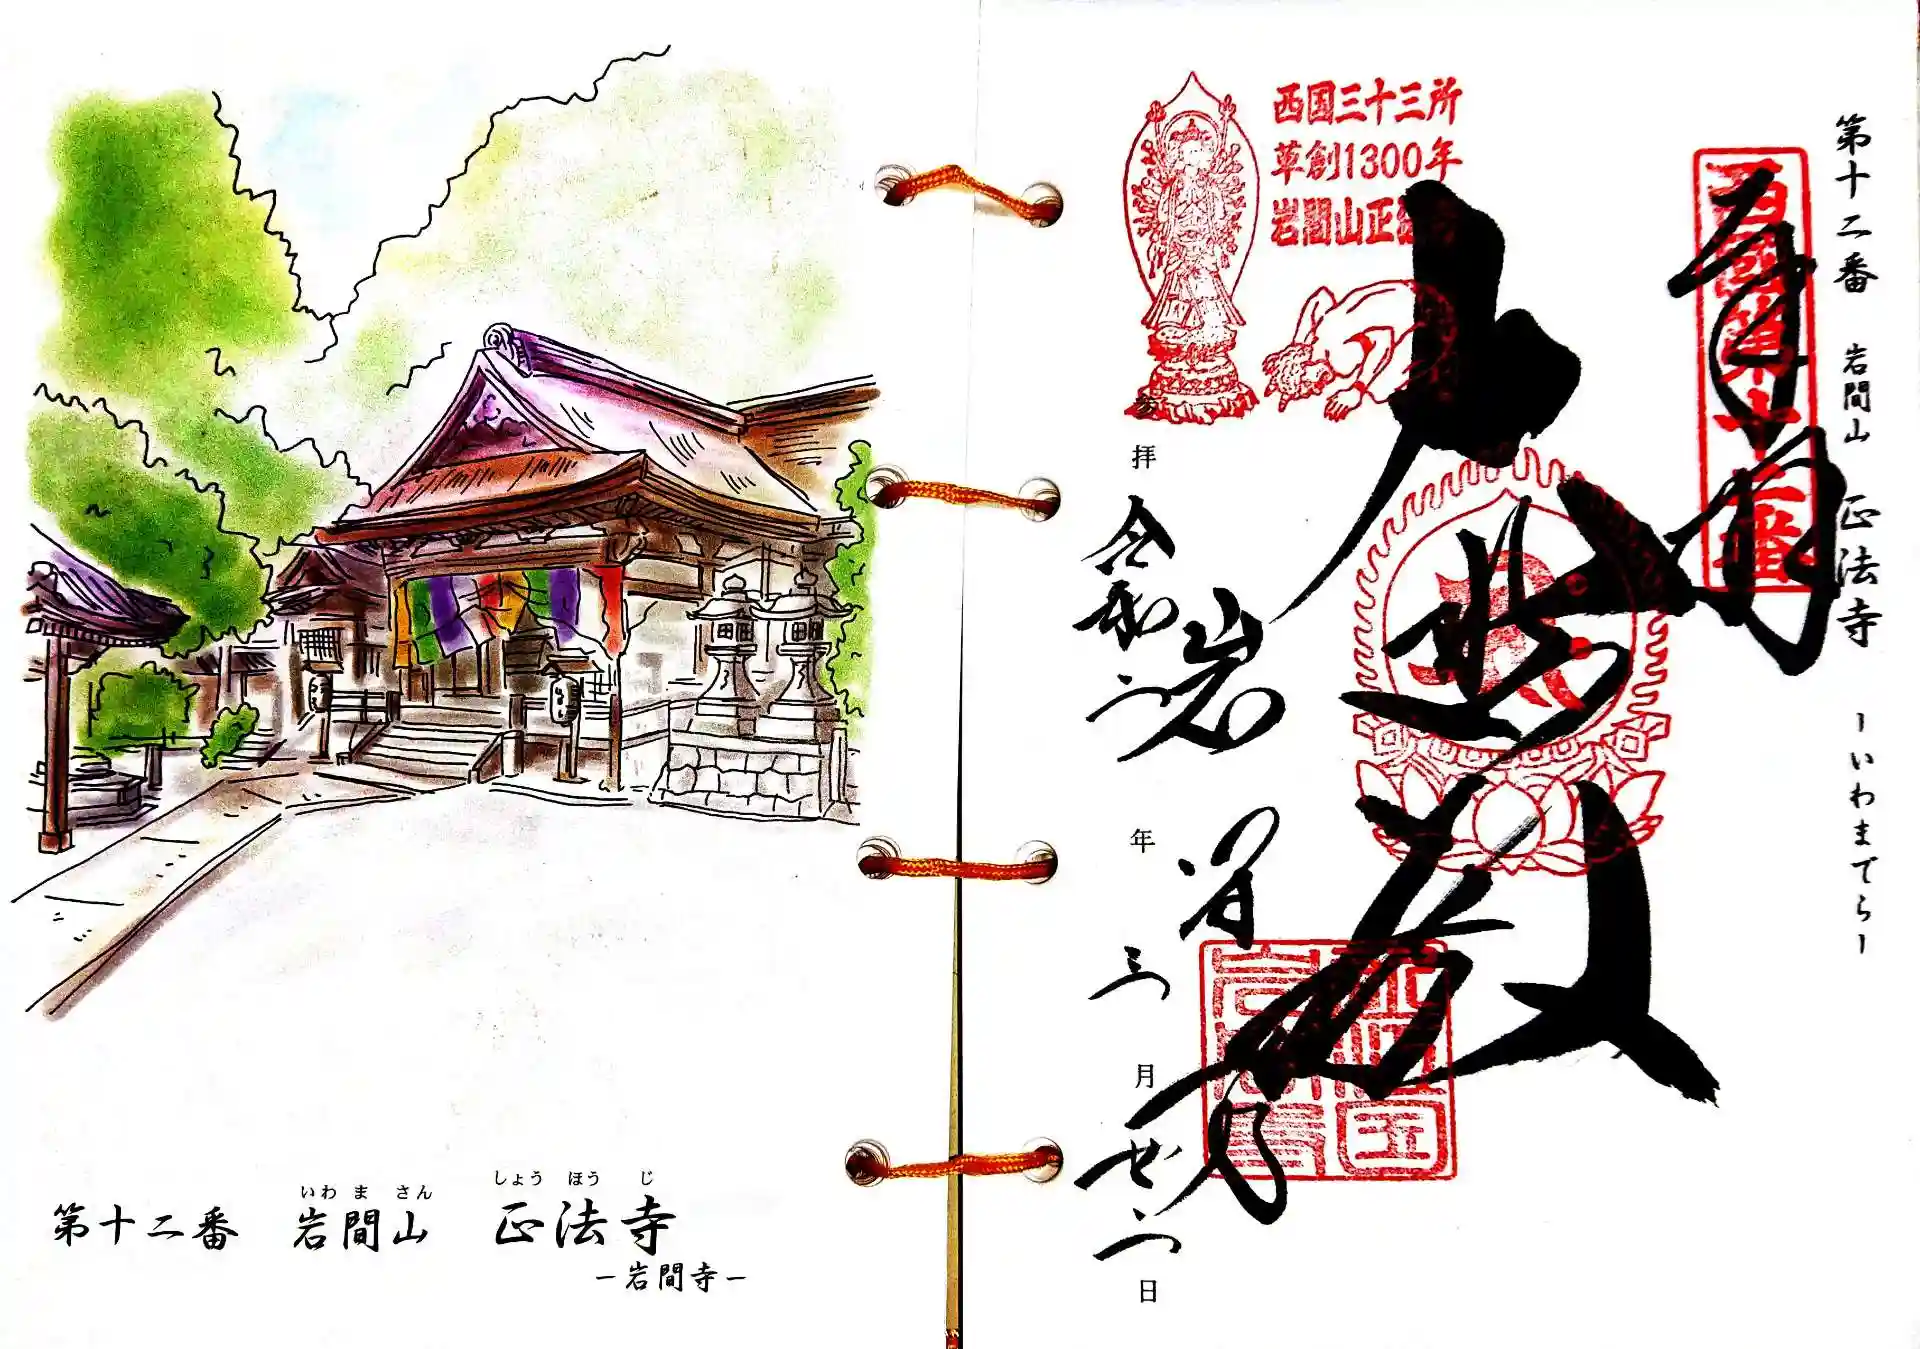 第十二番 岩間山 正法寺
いわ ま さん しょう ほう じ
ー岩間寺ー
第十二番 岩間山 正法寺 ーいわまでらー
西国三十三所
草創1300年
岩間山正法寺
西國第十二番
奉拝
大悲殿
岩間寺
令和二年三月廿八日